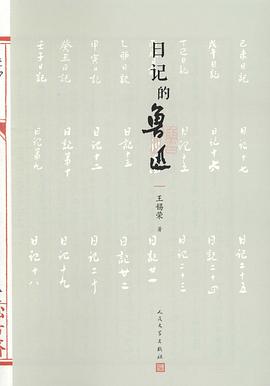 日记的鲁迅
王锡荣 著
人民文学出版社
己未日記
戊午日記
丁巳日記
乙卯日記
甲寅日記
癸丑日記
壬子日記
日記十七
日記十六
日記十五
日記十三
日記十二
日記第十
日記第九
日記二十五
日記二十四
日記二十三
日記十九
日記十八